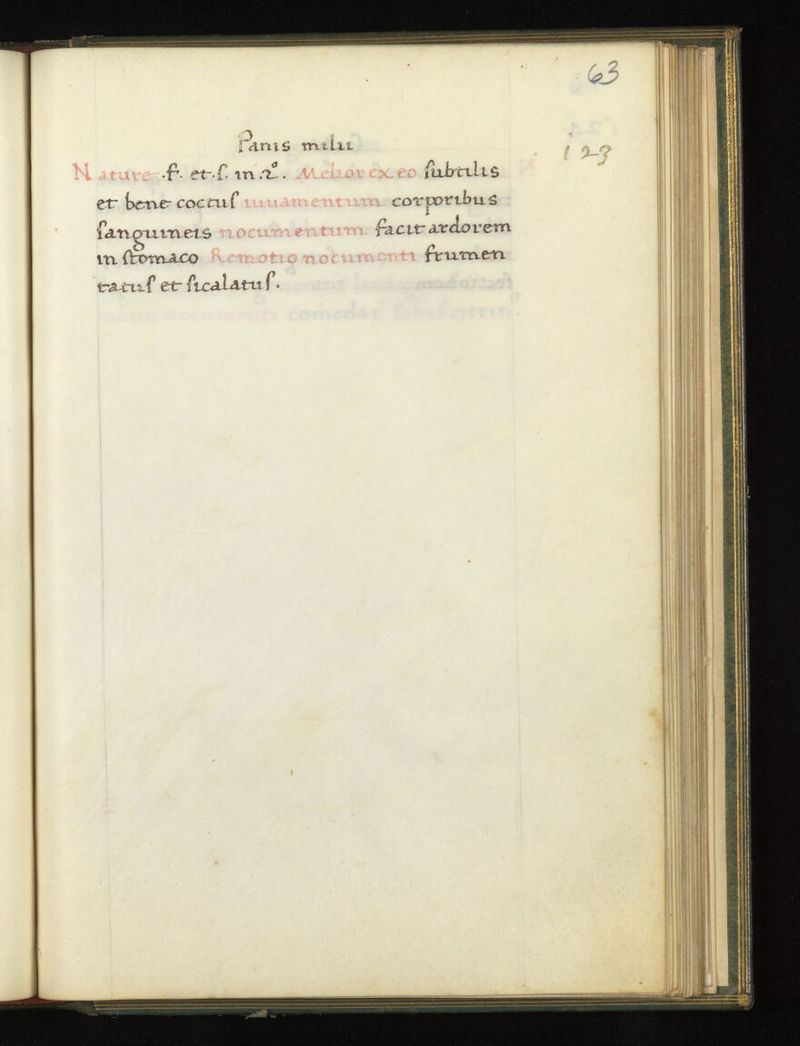 63
123
Panis milii
Nature .f. et .ſ. in .2°. Melior ex eo ſubtilis
et bene coctuſ iuuamentum corporibus
ſanguineis nocumentum facit ardorem
in ſtomaco Remotio nocumenti frumen
tatuſ et ſicalatuſ.